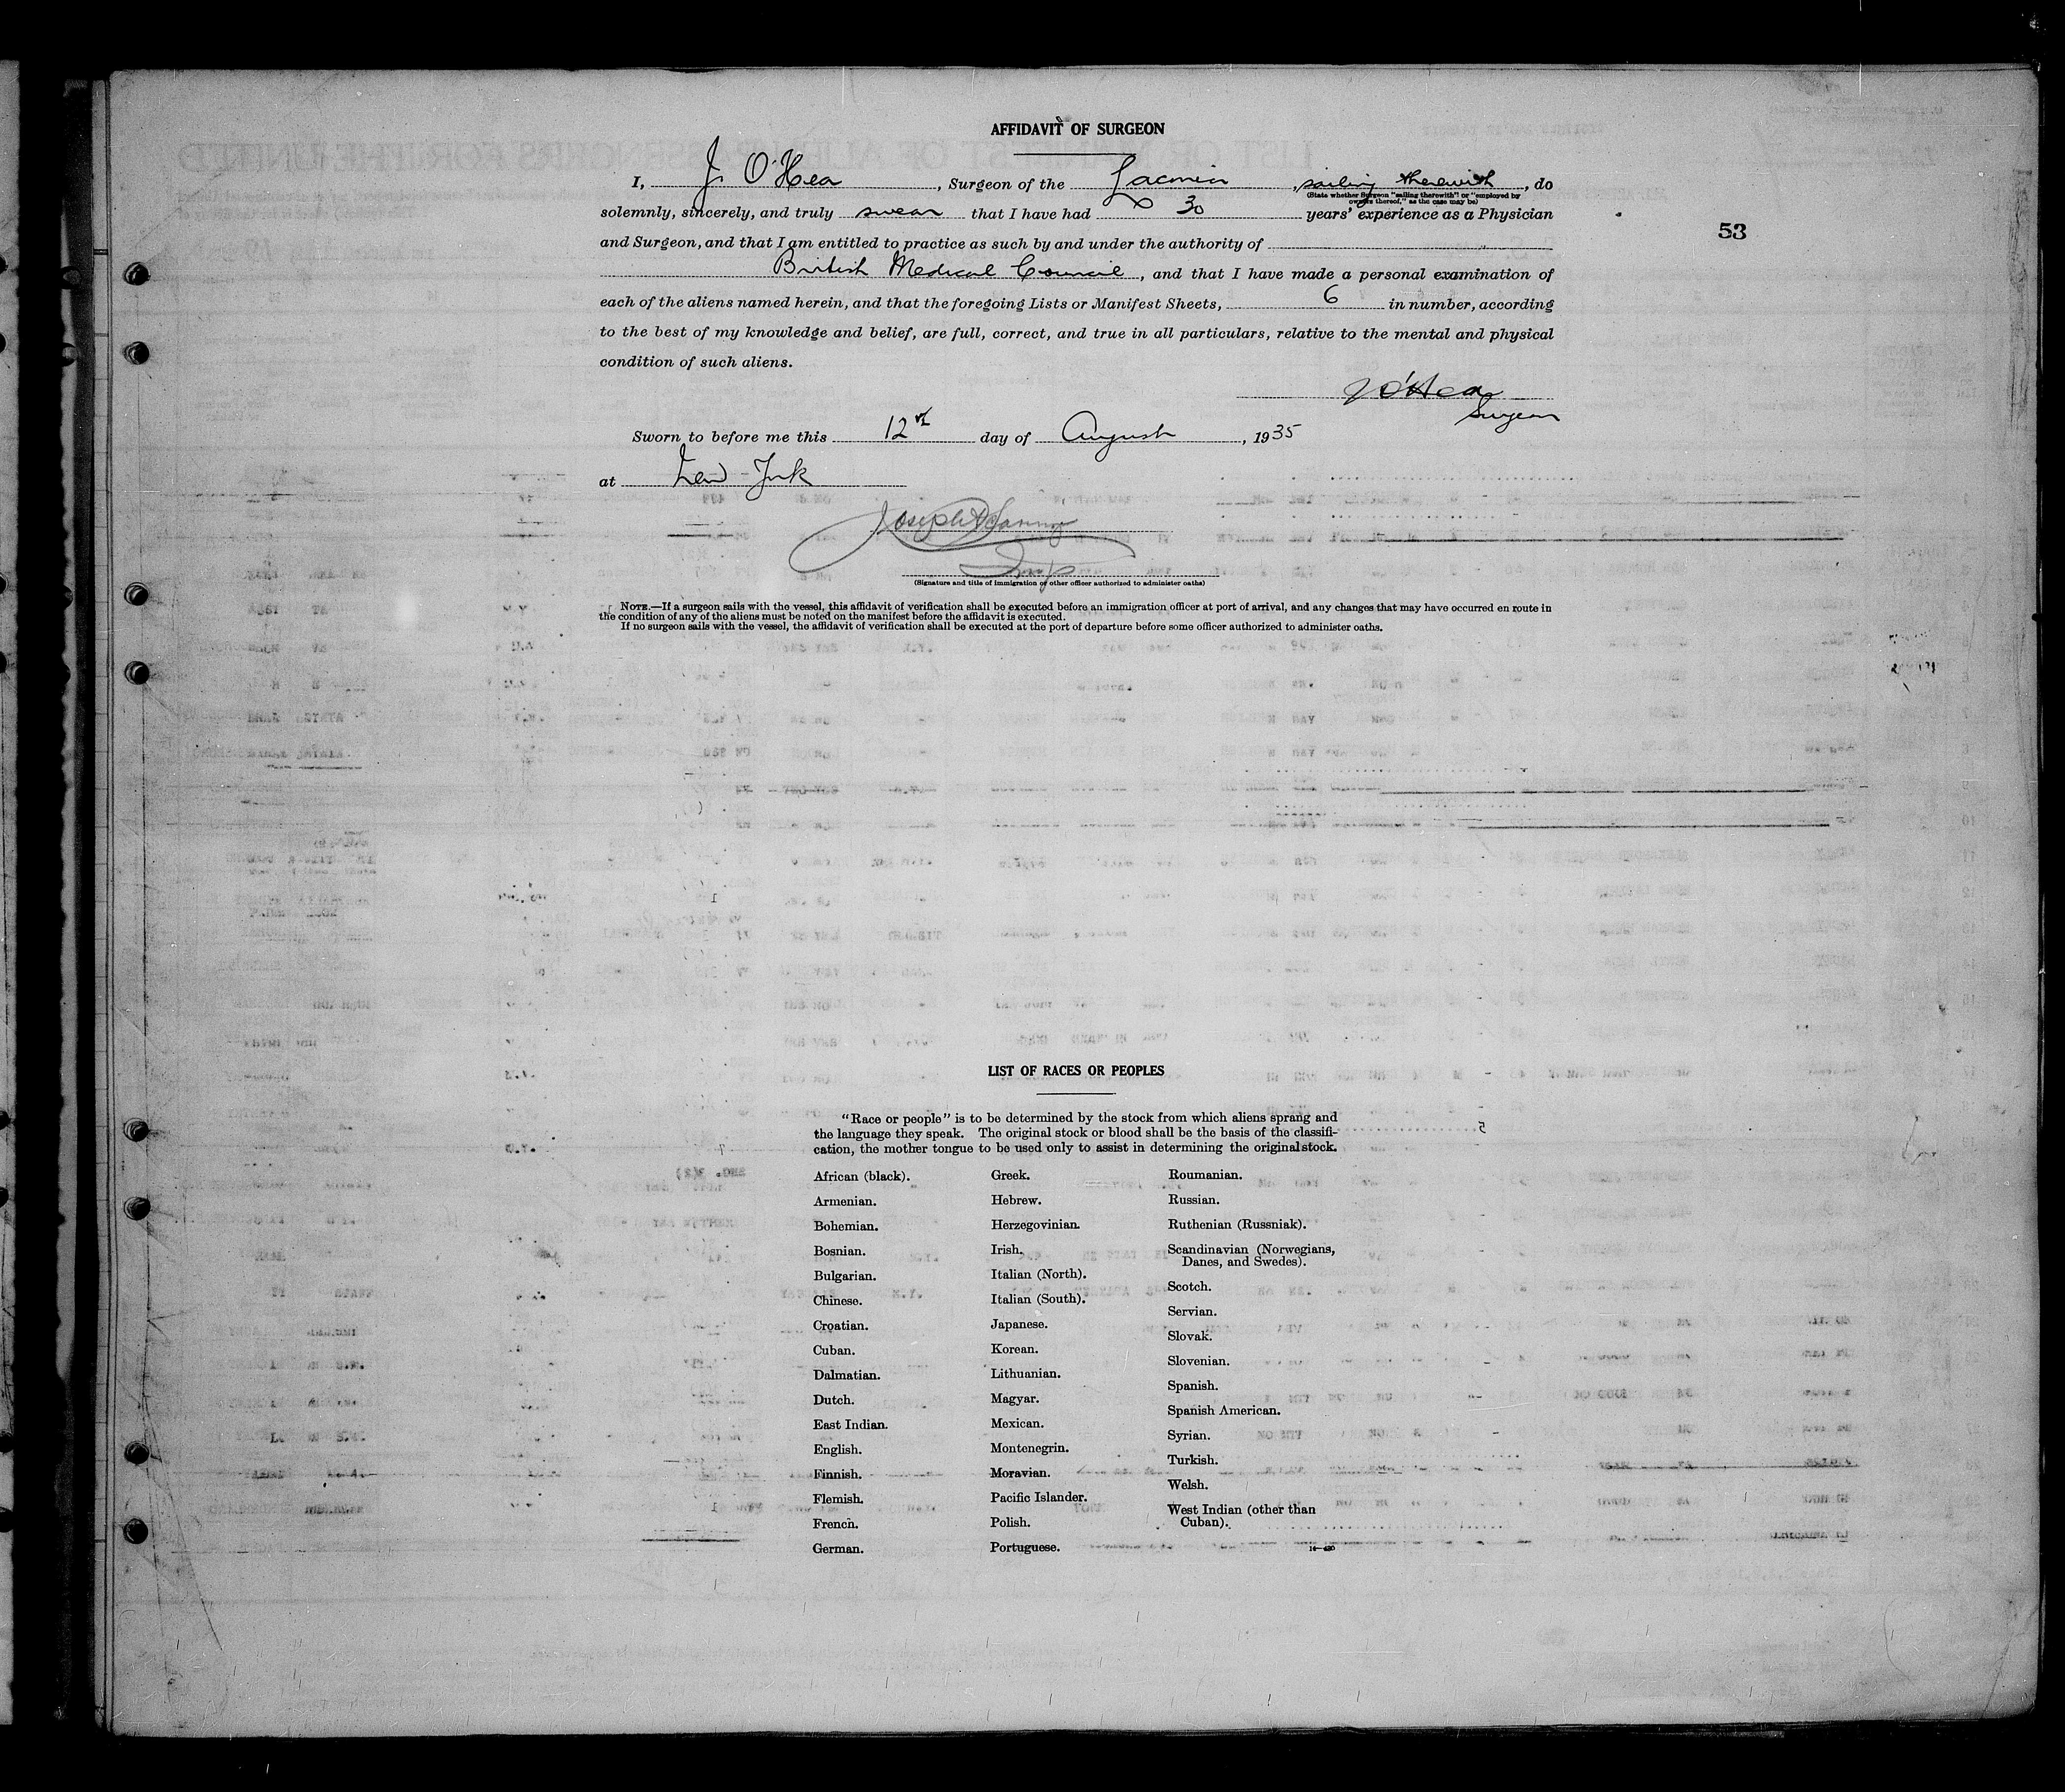 AFFIDAVIT OF SURGEON
I, J. O'Hea, Surgeon of the Laconia, sailing therewith, do
(State whether Surgeon "sailing therewith" or "employed by
owners thereof," as the case may be)
solemnly, sincerely, and truly swear that I have had 30 years' experience as a Physician
53
and Surgeon, and that I am entitled to practice as such by and under the authority of
British Medical Council, and that I have made a personal examination of
each of the aliens named herein, and that the foregoing Lists or Manifest Sheets, 6 in number, according
to the best of my knowledge and belief, are full, correct, and true in all particulars, relative to the mental and physical
condition of such aliens.
J O'Hea
Surgeon
Sworn to before me this 12th day of August, 1935
at New York
Joseph
Insp
(Signature and title of immigration or other officer authorized to administer oaths)
NOTE.—If a surgeon sails with the vessel, this affidavit of verification shall be executed before an immigration officer at port of arrival, and any changes that may have occurred en route in
the condition of any of the aliens must be noted on the manifest before the affidavit is executed.
If no surgeon sails with the vessel, the affidavit of verification shall be executed at the port of departure before some officer authorized to administer oaths.
LIST OF RACES OR PEOPLES
"Race or people" is to be determined by the stock from which aliens sprang and
the language they speak. The original stock or blood shall be the basis of the classifi-
cation, the mother tongue to be used only to assist in determining the original stock.
African (black).
Armenian.
Bohemian.
Bosnian.
Bulgarian.
Chinese.
Croatian.
Cuban.
Dalmatian.
Dutch.
East Indian.
English.
Finnish.
Flemish.
French.
German.
Greek.
Hebrew.
Herzegovinian.
Irish.
Italian (North).
Italian (South).
Japanese.
Korean.
Lithuanian.
Magyar.
Mexican.
Montenegrin.
Moravian.
Pacific Islander.
Polish.
Portuguese.
Roumanian.
Russian.
Ruthenian (Russniak).
Scandinavian (Norwegians,
Danes, and Swedes).
Scotch.
Servian.
Slovak.
Slovenian.
Spanish.
Spanish American.
Syrian.
Turkish.
Welsh.
West Indian (other than
Cuban).